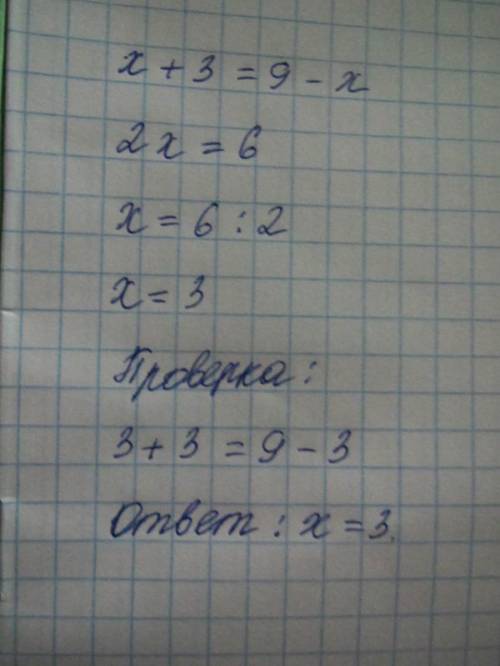 x + 3 = 9 - x
2x = 6
x = 6 : 2
x = 3
Проверка:
3 + 3 = 9 - 3
Ответ: x = 3.